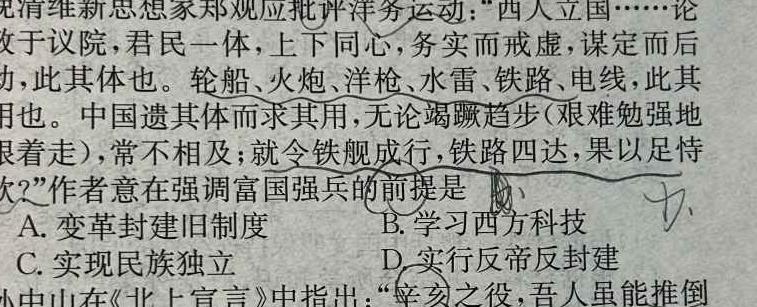 晚清维新思想家郑观应批评洋务运动:“西人立国……论
政于议院,君民一体,上下同心,务实而戒虚,谋定而后
动,此其体也。轮船、火炮、洋枪、水雷、铁路、电线,此其
用也。中国遗其体而求其用,无论竭蹶趋步(艰难勉强地
跟着走),常不相及;就令铁舰成行,铁路四达,果以足恃
欤?”作者意在强调富国强兵的前提是
A. 变革封建旧制度 B. 学习西方科技
C. 实现民族独立 D. 实行反帝反封建
孙中山在《北上宣言》中指出:“辛亥之役,吾人虽能推倒